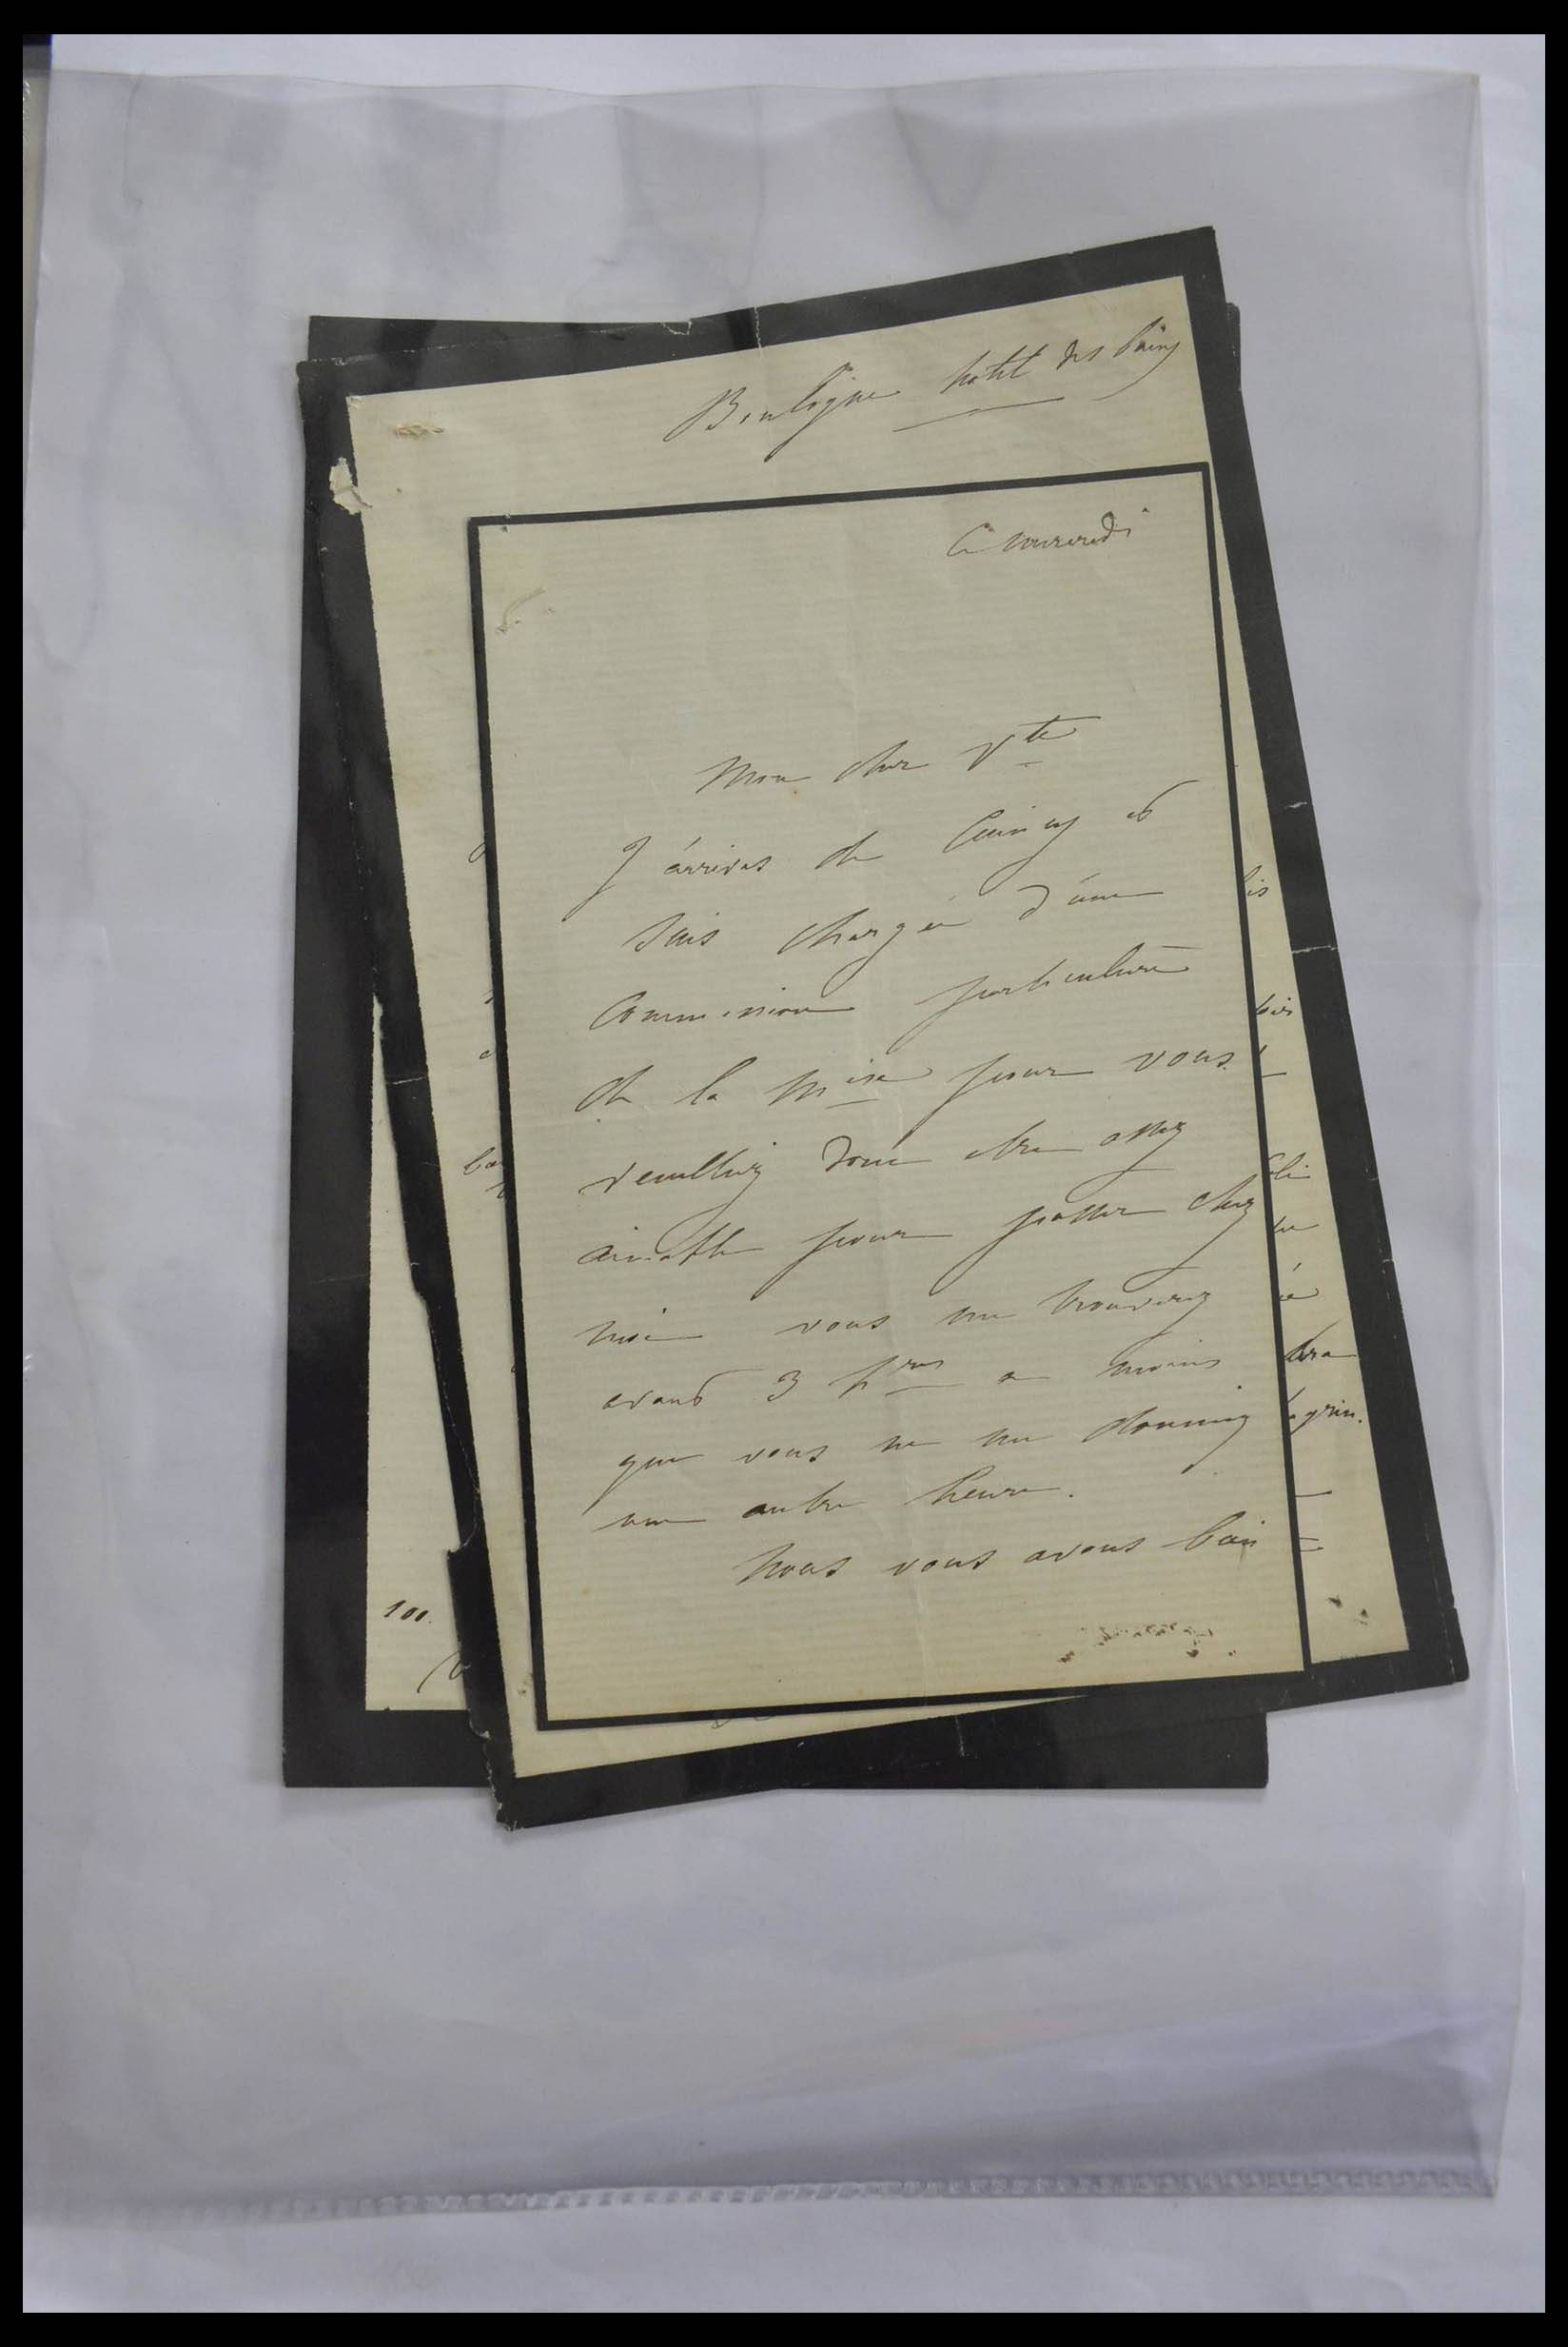 Boulogne hotel des bains
Ce mercredi
Mon cher Vte
J'arrives de et
suis chargée d'une
commission particulière
de la Mise pour vous
veuilliez donc etre assez
aimable pour passer chez
moi vous me trouverez
avant 3 hres a moins
que vous ne me donniez
une autre heure.
Nous vous avons bien
100.